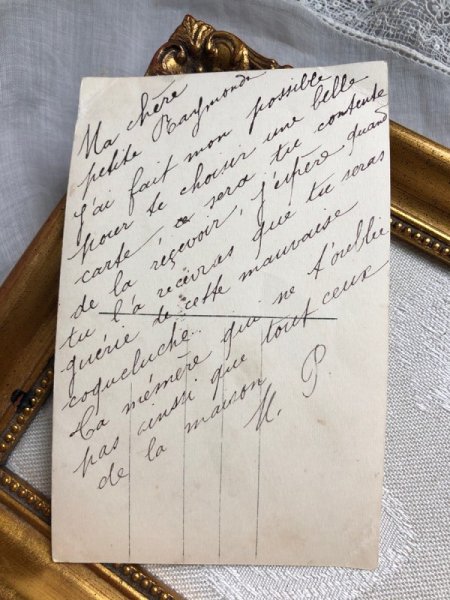 Ma chère
petite Raymonde
j'ai fait mon possible
pour te choisir une belle
carte, ce sera tu contente
de la reçevoir, j'espère quand
tu l'a recevras que tu seras
guérie de cette mauvaise
coqueluche..
Ta mémère qui ne t'oublie
pas ainsi que tout ceux
de la maison
M. P.